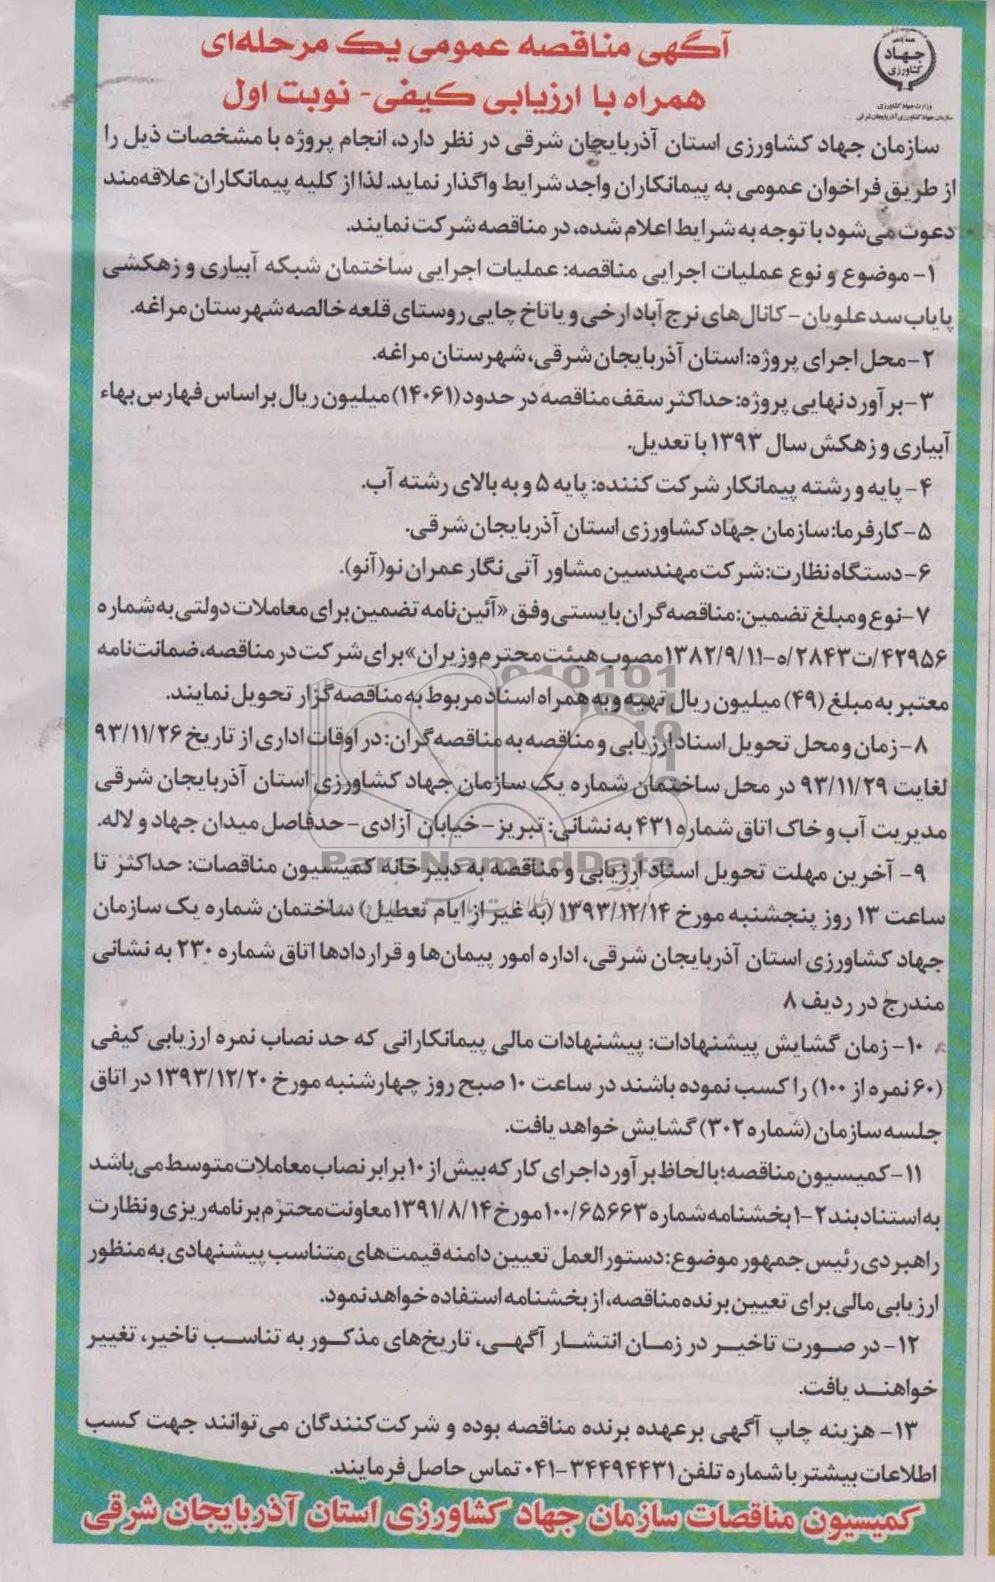 آگهی مناقصه عمومی یک مرحله‌ای
همراه با ارزیابی کیفی- نوبت اول
جهاد
کشاورزی
وزارت جهاد کشاورزی
سازمان جهاد کشاورزی آذربایجان شرقی
سازمان جهاد کشاورزی استان آذربایجان شرقی در نظر دارد، انجام پروژه با مشخصات ذیل را
از طریق فراخوان عمومی به پیمانکاران واجد شرایط واگذار نماید. لذا از کلیه پیمانکاران علاقه‌مند
دعوت می‌شود با توجه به شرایط اعلام شده، در مناقصه شرکت نمایند.
۱- موضوع و نوع عملیات اجرایی مناقصه: عملیات اجرایی ساختمان شبکه آبیاری و زهکشی
پایاب سد علویان- کانال‌های نرج آباد ارخی و یاتاخ چایی روستای قلعه خالصه شهرستان مراغه.
۲- محل اجرای پروژه: استان آذربایجان شرقی، شهرستان مراغه.
۳- برآورد نهایی پروژه: حداکثر سقف مناقصه در حدود (۱۴۰۶۱) میلیون ریال براساس فهارس بهاء
آبیاری و زهکش سال ۱۳۹۳ با تعدیل.
۴- پایه و رشته پیمانکار شرکت کننده: پایه ۵ و به بالای رشته آب.
۵- کارفرما: سازمان جهاد کشاورزی استان آذربایجان شرقی.
۶- دستگاه نظارت: شرکت مهندسین مشاور آتی نگار عمران نو (آنو).
۷- نوع و مبلغ تضمین: مناقصه گران بایستی وفق «آئین‌نامه تضمین برای معاملات دولتی به شماره
۴۲۹۵۶/ت۲۸۴۳/ه-۱۳۸۲/۹/۱۱ مصوب هیئت محترم وزیران» برای شرکت در مناقصه، ضمانت‌نامه
معتبر به مبلغ (۴۹) میلیون ریال تهیه و به همراه اسناد مربوط به مناقصه گزار تحویل نمایند.
۸- زمان و محل تحویل اسناد ارزیابی و مناقصه به مناقصه گران: در اوقات اداری از تاریخ ۹۳/۱۱/۲۶
لغایت ۹۳/۱۱/۲۹ در محل ساختمان شماره یک سازمان جهاد کشاورزی استان آذربایجان شرقی
مدیریت آب و خاک اتاق شماره ۴۳۱ به نشانی: تبریز- خیابان آزادی- حدفاصل میدان جهاد و لاله.
ParsNamadData
۹- آخرین مهلت تحویل اسناد ارزیابی و مناقصه به دبیرخانه کمیسیون مناقصات: حداکثر تا
ساعت ۱۳ روز پنجشنبه مورخ ۱۳۹۳/۱۲/۱۴ (به غیر از ایام تعطیل) ساختمان شماره یک سازمان
جهاد کشاورزی استان آذربایجان شرقی، اداره امور پیمان‌ها و قراردادها اتاق شماره ۲۳۰ به نشانی
مندرج در ردیف ۸
۱۰- زمان گشایش پیشنهادات: پیشنهادات مالی پیمانکارانی که حد نصاب نمره ارزیابی کیفی
(۶۰ نمره از ۱۰۰) را کسب نموده باشند در ساعت ۱۰ صبح روز چهارشنبه مورخ ۱۳۹۳/۱۲/۲۰ در اتاق
جلسه سازمان (شماره ۳۰۲) گشایش خواهد یافت.
۱۱- کمیسیون مناقصه؛ با لحاظ برآورد اجرای کار که بیش از ۱۰ برابر نصاب معاملات متوسط می‌باشد
به استناد بند ۲-۱ بخشنامه شماره ۱۰۰/۶۵۶۶۳ مورخ ۱۳۹۱/۸/۱۴ معاونت محترم برنامه ریزی و نظارت
راهبردی رئیس جمهور موضوع: دستورالعمل تعیین دامنه قیمت‌های متناسب پیشنهادی به منظور
ارزیابی مالی برای تعیین برنده مناقصه، از بخشنامه استفاده خواهد نمود.
۱۲- در صورت تاخیر در زمان انتشار آگهی، تاریخ‌های مذکور به تناسب تاخیر، تغییر
خواهند یافت.
۱۳- هزینه چاپ آگهی برعهده برنده مناقصه بوده و شرکت‌کنندگان می‌توانند جهت کسب
اطلاعات بیشتر با شماره تلفن ۳۴۴۹۴۴۳۱-۰۴۱ تماس حاصل فرمایند.
کمیسیون مناقصات سازمان جهاد کشاورزی استان آذربایجان شرقی